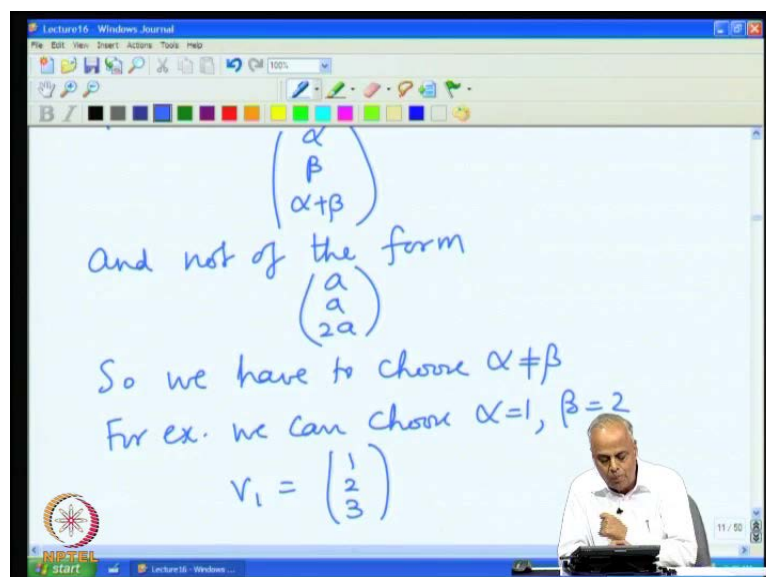 Lecture16 - Windows Journal
File Edit View Insert Actions Tools Help
100%
B I
α
β
α+β
And not of the form
a
a
2a
So we have to choose α≠β
For ex. we can choose α=1, β=2
V₁ =
1
2
3
11 / 50
NPTEL
start
Lecture16 - Windows ...